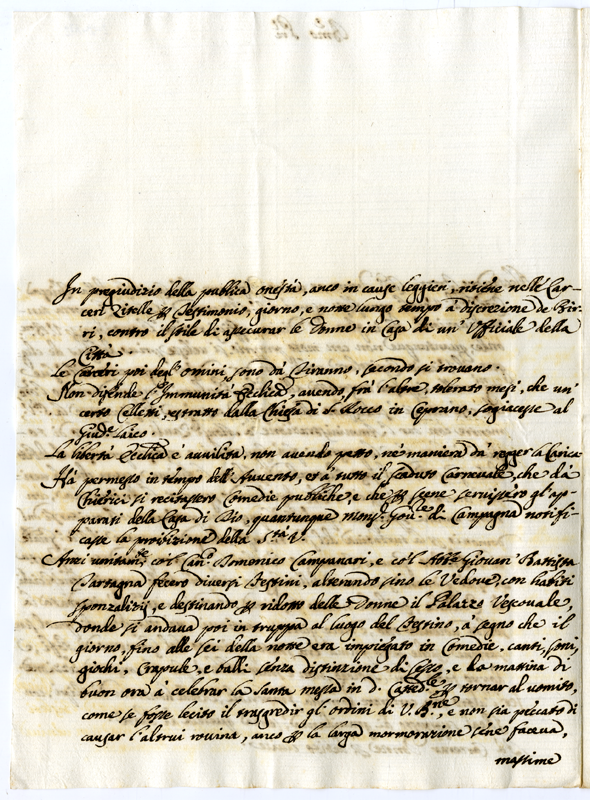 In pregiudizio della publica onestà, anco in cause leggieri, ritiene nelle Car-
ceri Zitelle per Testimonio, giorno, e notte lungo tempo à discrezione de Bir-
ri, contro il stile di assicurar le Donne in Casa di un' Vfficiale della
Città.
Le Carceri poi degl' omini sono dà Tiranno, secondo si trovano.
Non difende l'Immunità Ecclica, avendo, frà l'altre, tolerato mesi, che un'
certo Celletti, estratto dalla Chiesa di S. Rocco in Ceprano, sogiacesse al
Giud.e Laico.
La libertà Ecclica è avvilita, non avendo petto, ne maniera dà regger la Carica
Hà permesso in tempo dell' Avvento, et à tutto il scaduto Carnevale, che dà
Chierici si recitassero Comedie publiche, e che per scene servissero gl' ap-
parati della Casa di Dio, quantunque Mons.r Gov.re di Campagna notifi-
casse la proibizione della S.tà S.
Anzi unitam.te col Can.co Domenico Campanari, e co'l Abb.e Giovan' Battista
Tartagna fecero diversi Festini, alterando sino le Vedove, con habiti
sponzalizij, e destinando per ridotto delle Donne il Palazzo Vescovale,
donde si andava poi in truppa al luogo del Festino, à segno che il
giorno, fino alle sei della notte era impiegato in Comedie, canti, soni,
giochi, Crapule, e balli senza distinzione di sesso, e la matina di
buon ora à celebrar la Santa messa in d. Catted.le per tornar al vomito,
come se fosse lecito il trasgredir gl' ordini di V. B.ne, e non sia peccato di
causar l'altrui rovina, anco per la larga mormorazione se ne faceva,
massime